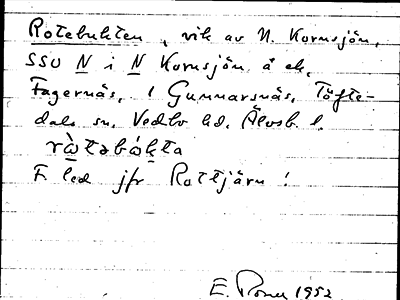 Rotebukten, vik av N. Kornsjön,
SSV N i N Kornsjön å ek.
Fagernäs, 1 Gunnarsnäs, Töfte-
dals sn, Vedbo hd, Älvsb. l.
rⱳ̀təbúkta
F. led jfr Rottjärn!
E. 1952